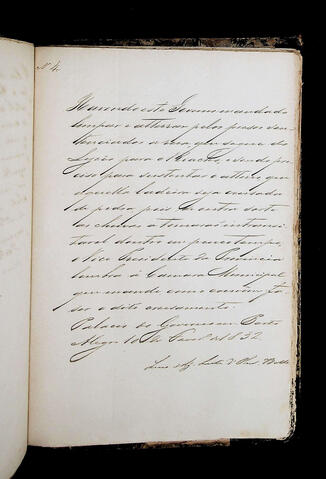 N. 4.
Havendo este Governo mandado
limpar e atterrar pelos presos sen-
tenciados a rua que segue do
para o Riacho, e sendo pre-
ciso para sustentar o atterro que
aquella ladeira seja
de pedra, pois de outra sorte
as chuvas a tornarão intransi-
tavel dentro em pouco tempo,
o Vice Presidente da Provincia
lembra á Camara Municipal
que mande como convem fa-
zer o dito
Palacio do Governo em Porto
Alegre 10 de de 1832.